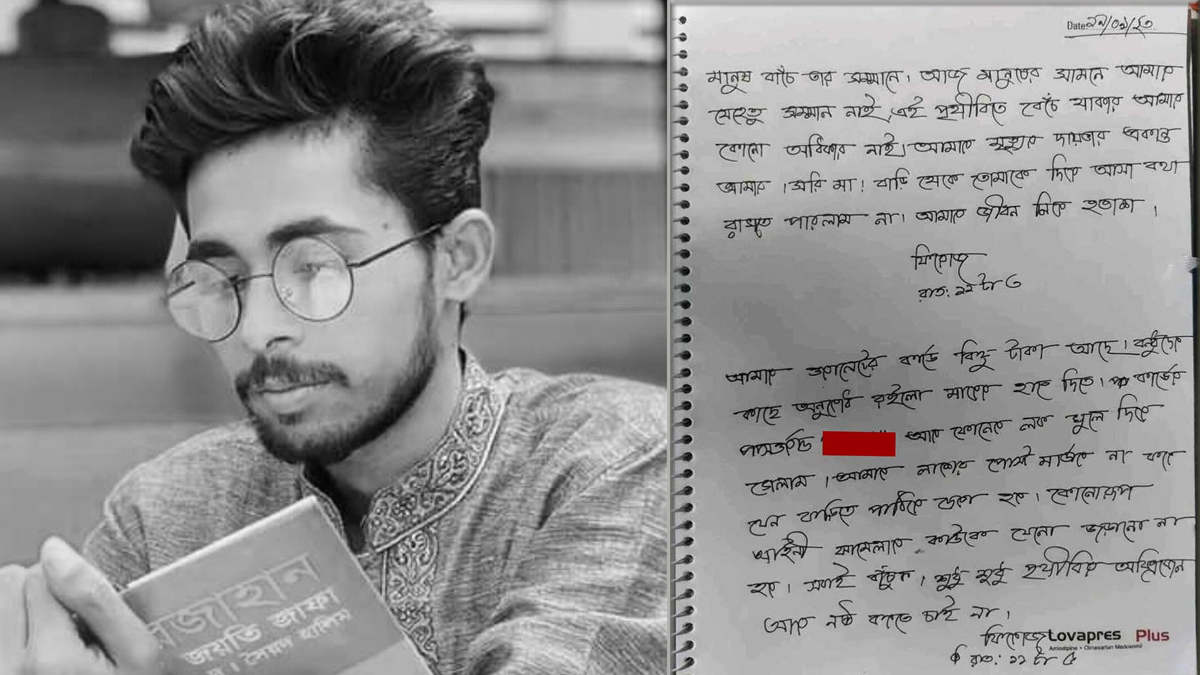 জাহান
জয়তি জাফা
সৈয়দ হালিম
Date:
মানুষ বাঁচে তার সম্মানে। আজ মানুষের সামনে আমার
যেহেতু সম্মান নাই, এই পৃথীবিতে বেঁচে থাকার আমার
কোনো অধিকার নাই। আমার মৃত্যুর দায়ভার একান্ত
আমার। সরি মা! বাড়ি থেকে তোমাকে দিয়ে আসা কথা
রাখতে পারলাম না। আমার জীবন নিয়ে হতাশ।
ফিরোজ
রাত: ১১ টা ৩
আমার ওয়ালেটের কার্ডে কিছু টাকা আছে। বন্ধুদের
কাছে অনুরোধ রইলো মায়ের হাতে দিতে। কার্ডের
পাসওয়ার্ড আর ফোনের লক খুলে দিয়ে
গেলাম। আমার লাশের পোস্ট মার্টেম না করে
যেন বাড়িতে পাঠিয়ে দেওয়া হয়। কোনোরূপ
আইনী ঝামেলায় কাউকে যেনো জড়ানো না
হয়। সবাই বাঁচুক। শুধু শুধু পৃথীবির অক্সিজেন
আর নষ্ট করতে চাই না।
ফিরোজ
রাত: ১১ টা ৫
Lovapres Plus
Amlodipine + Olmesartan Medoxomil